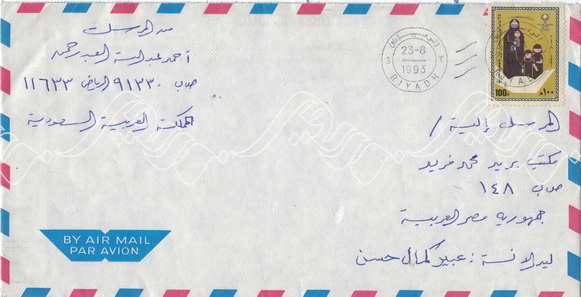 من المرسل
احمد عبد الله العبدرحمن
ص.ب ٩١٣٣٠ الرياض ١١٦٣٣
المملكة العربية السعودية
الرياض
23-8
1993
RIYADH
100
١٠٠
المرسل إليه /
مكتب بريد محمد فريد
ص.ب ١٤٨
جمهورية مصر العربية
ليد الانسة : عبير كمال حسن
BY AIR MAIL
PAR AVION